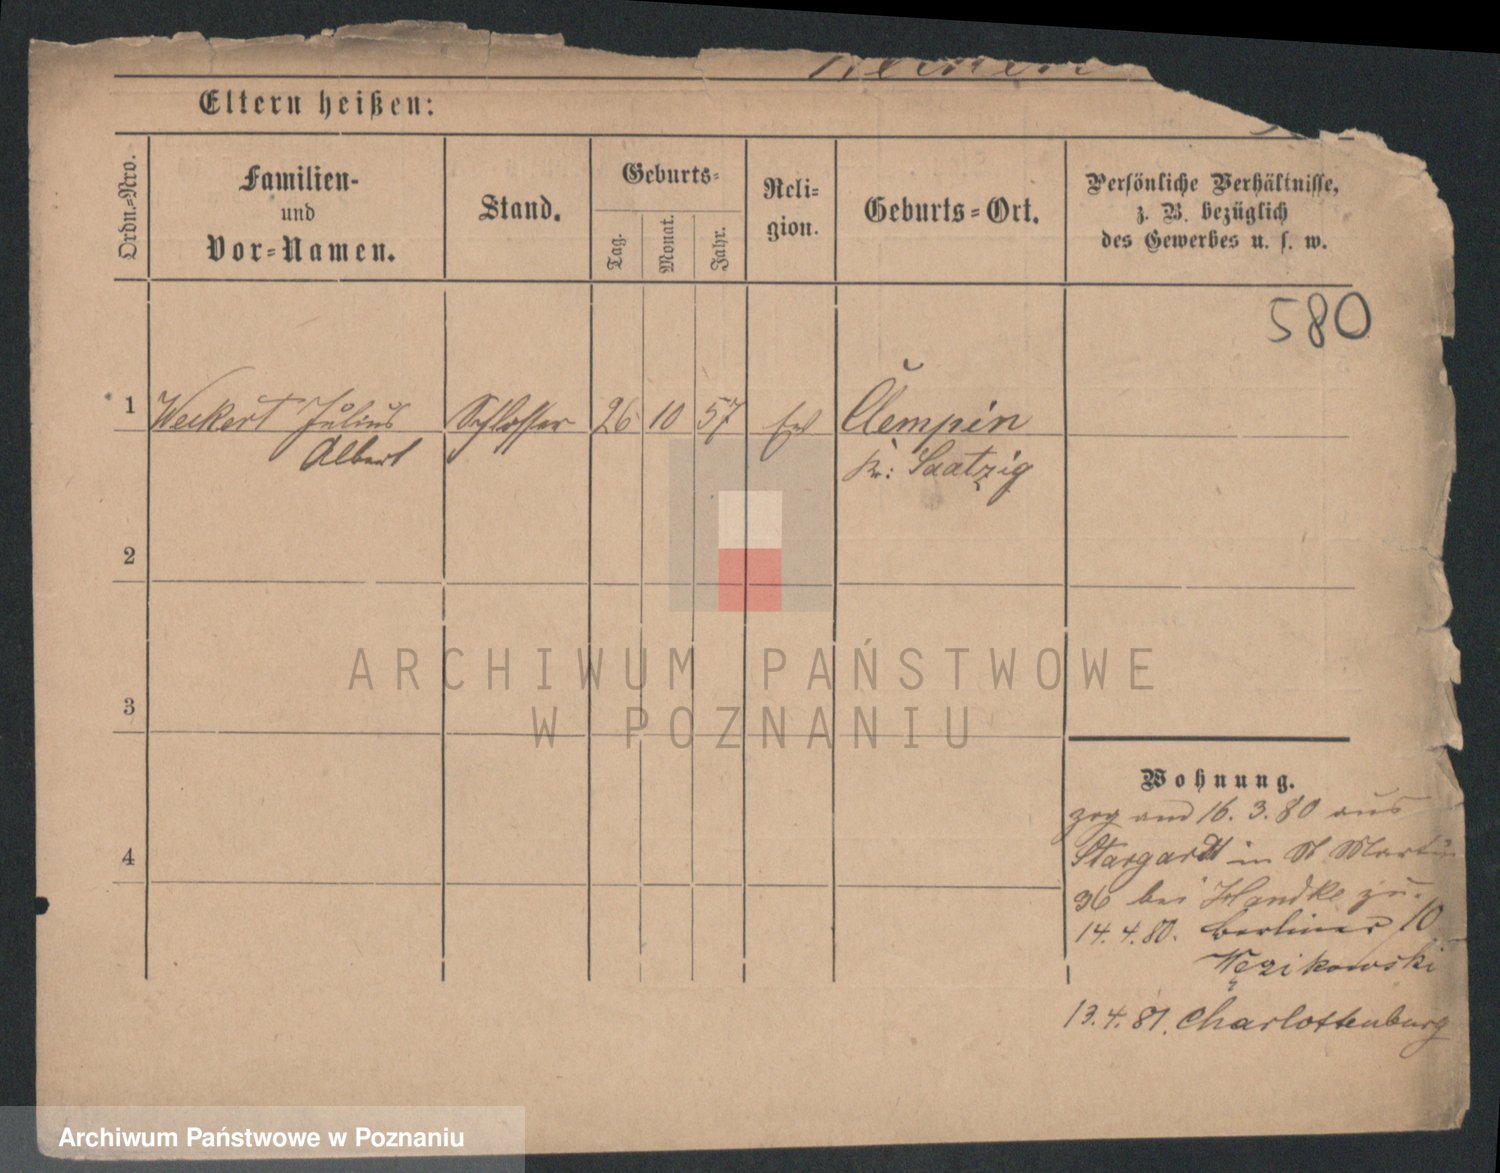 Eltern heißen:
Ordn.-Nro.
Familien-
und
Vor-Namen.
Stand.
Geburts-
Tag.
Monat.
Jahr.
Reli-
gion.
Geburts-Ort.
Persönliche Verhältnisse,
z. B. bezüglich
des Gewerbes u. s. w.
580
1 Weckert Julius Schlosser 26 10 57 ev Clempin
Albert Kr: Saatzig
2
3
4
Wohnung.
zog am 16. 3. 80 aus
Stargardt in St Martin
36 bei Handke zu.
14. 4. 80. Berliner 10
Węzikowski
13. 4. 81. Charlottenburg
ARCHIWUM PAŃSTWOWE
W POZNANIU
Archiwum Państwowe w Poznaniu